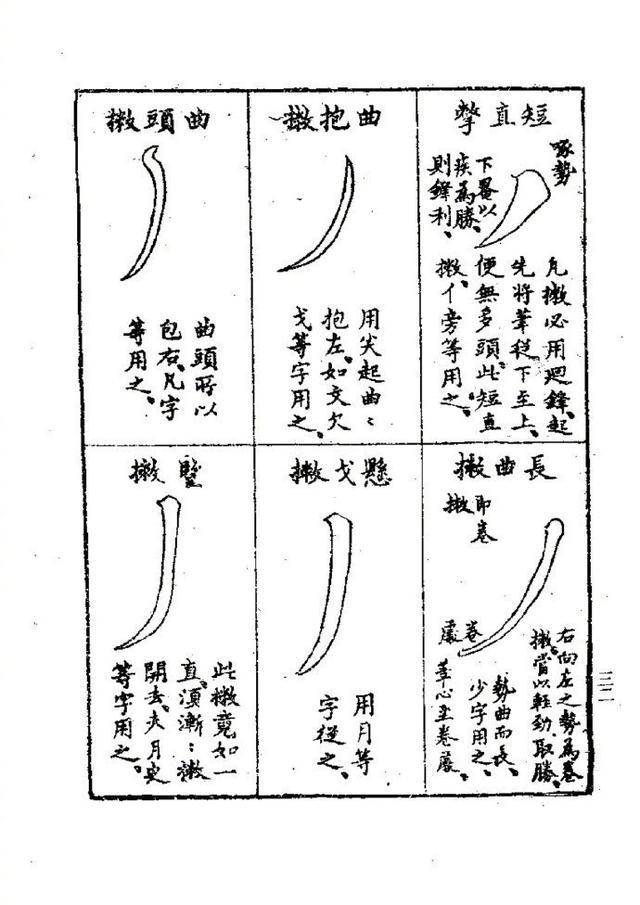 短直撆
啄勢
下以
疾爲勝、
則鋒利、
凡撇必用廻鋒、起
先將筆從下至上、
便無多頭、此短直
撇、亻旁等用之、
曲抱撇
用尖起曲〻
抱左、如文欠
戈等字用之、
曲頭撇
曲頭所以
包右、凡字
等用之、
長曲撇
即卷
撇
右向左之勢爲卷
撇、當以輕勁取勝、
勢曲而長、
少字用之、
卷
處
筆心至卷處
懸戈撇
用月等
字從之、
豎撇
此撇竟如一
直、須漸〻撇
開去、夫月史
等字用之、
三二